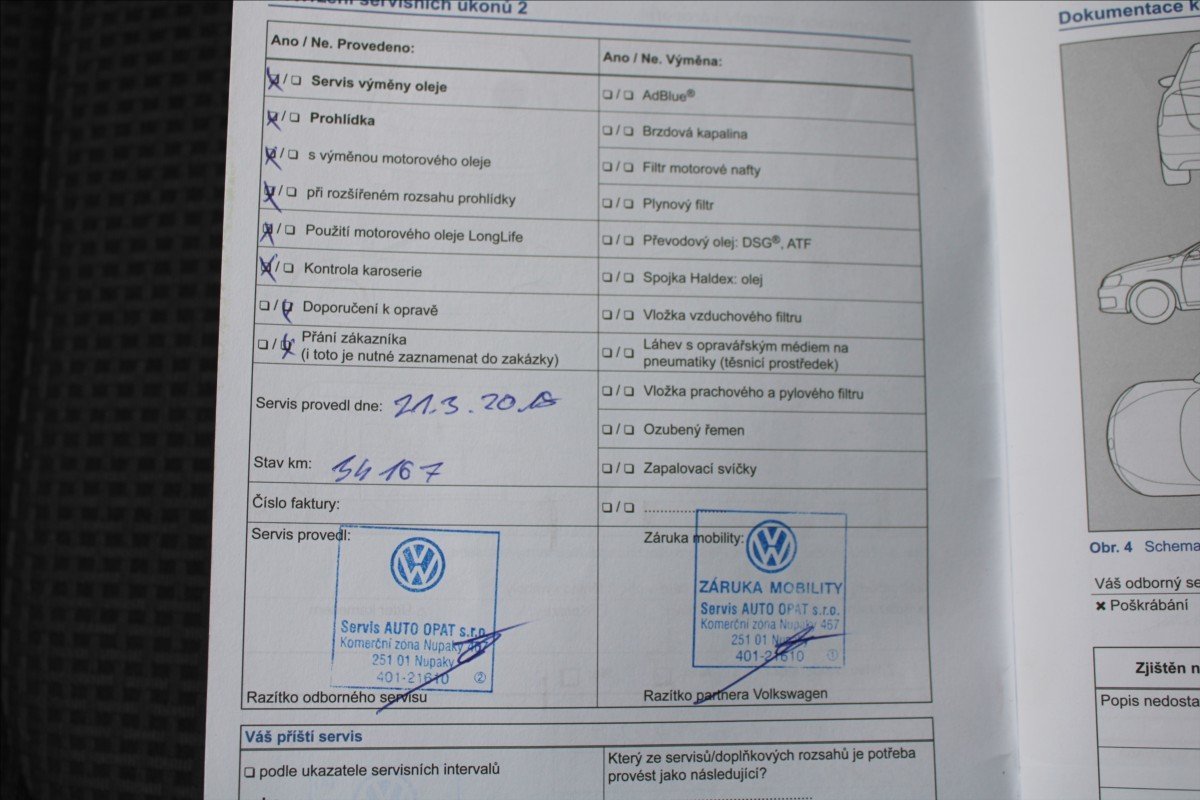 servisních úkonů 2
Ano / Ne. Provedeno:
☒ / ☐ Servis výměny oleje
☒ / ☐ Prohlídka
☒ / ☐ s výměnou motorového oleje
☒ / ☐ při rozšířeném rozsahu prohlídky
☒ / ☐ Použití motorového oleje LongLife
☒ / ☐ Kontrola karoserie
☐ / ☒ Doporučení k opravě
☐ / ☒ Přání zákazníka
(i toto je nutné zaznamenat do zakázky)
Servis provedl dne: 21.3.20
Stav km: 54 167
Číslo faktury:
Servis provedl:
Servis AUTO OPAT s.r.o.
Komerční zóna Nupaky 467
251 01 Nupaky
401-21610 ②
Razítko odborného servisu
Ano / Ne. Výměna:
☐ / ☐ AdBlue®
☐ / ☐ Brzdová kapalina
☐ / ☐ Filtr motorové nafty
☐ / ☐ Plynový filtr
☐ / ☐ Převodový olej: DSG®, ATF
☐ / ☐ Spojka Haldex: olej
☐ / ☐ Vložka vzduchového filtru
☐ / ☐ Láhev s opravářským médiem na
pneumatiky (těsnicí prostředek)
☐ / ☐ Vložka prachového a pylového filtru
☐ / ☐ Ozubený řemen
☐ / ☐ Zapalovací svíčky
☐ / ☐ ....................
Záruka mobility:
ZÁRUKA MOBILITY
Servis AUTO OPAT s.r.o.
Komerční zóna Nupaky 467
251 01 Nupaky
401-21610 ①
Razítko partnera Volkswagen
Váš příští servis
☐ podle ukazatele servisních intervalů
Který ze servisů/doplňkových rozsahů je potřeba
provést jako následující?
Dokumentace k
Obr. 4 Schema
Váš odborný se
✖ Poškrábání
Zjištěn n
Popis nedosta